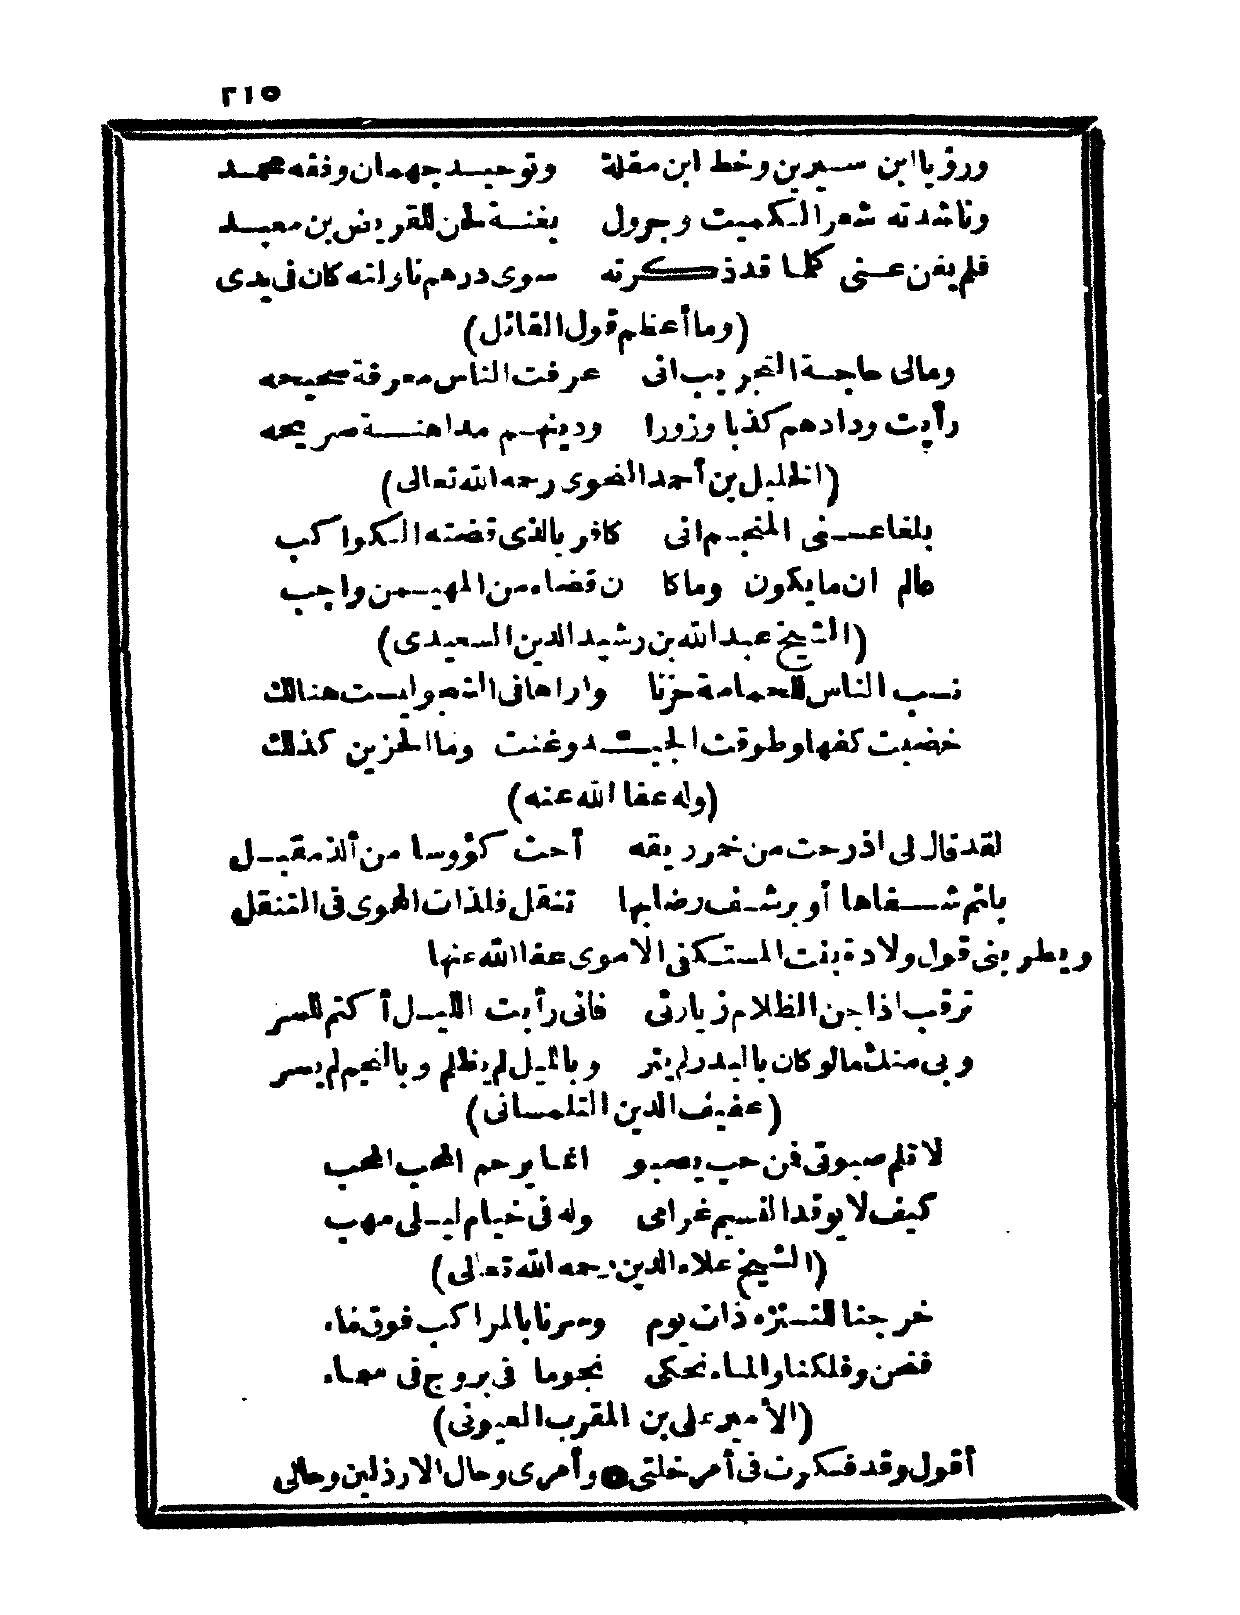 ٢١٥
ورؤيا ابن سيرين وخط ابن مقلة وتوحيد جهمان وفقه محمد
وناشدته شعر الكميت وجرول بغنة لحن للقريض بن معبد
فلم يغن عنى كلما قد ذكرته سوى درهم ناولته كان فى يدى
(وما أعظم قول القائل)
ومالى حاجة التجريب انى عرفت الناس معرفة صحيحه
رأيت ودادهم كذبا وزورا ودينهم مداهنة صريحه
(الخليل بن أحمد النحوى رحمه الله تعالى)
بلغا عنى المنجم انى كافر بالذى قضته الكواكب
عالم ان ما يكون وما كا ن قضاء من المهيمن واجب
(الشيخ عبد الله بن رشيد الدين السعيدى)
نسب الناس للحمامة حزنا واراها فى الشجو ليست هنالك
خضبت كفها وطوقت الجيد وغنت وما الحزين كذلك
(وله عفا الله عنه)
لقد قال لى اذ رحت من خمر ريقه أحث كؤوسا من ألذ مقبل
بلثم شفاها أو برشف رضابها تنقل فلذات الهوى فى التنقل
ويطربنى قول ولادة بنت المستكفى الاموى عفا الله عنها
ترقب اذا جن الظلام زيارتى فانى رأيت الليل أكتم للسر
وبى منك مالو كان بالبدر لم ينر وبالليل لم يظلم وبالنجم لم يسر
(عفيف الدين التلمسانى)
لا تلم صبوتى فمن حب يصبو انما يرحم المحب المحب
كيف لا يوقد النسيم غرامى وله فى خيام ليلى مهب
(الشيخ علاء الدين رحمه الله تعالى)
خرجنا للتنزه ذات يوم وسرنا بالمراكب فوق ماء
فنحن وفلكنا والماء نحكى نجوما فى بروج فى سماء
(الأمير على بن المقرب العيونى)
أقول وقد فكرت فى أمر خلتى وأمرى وحال الارذلين وحالى